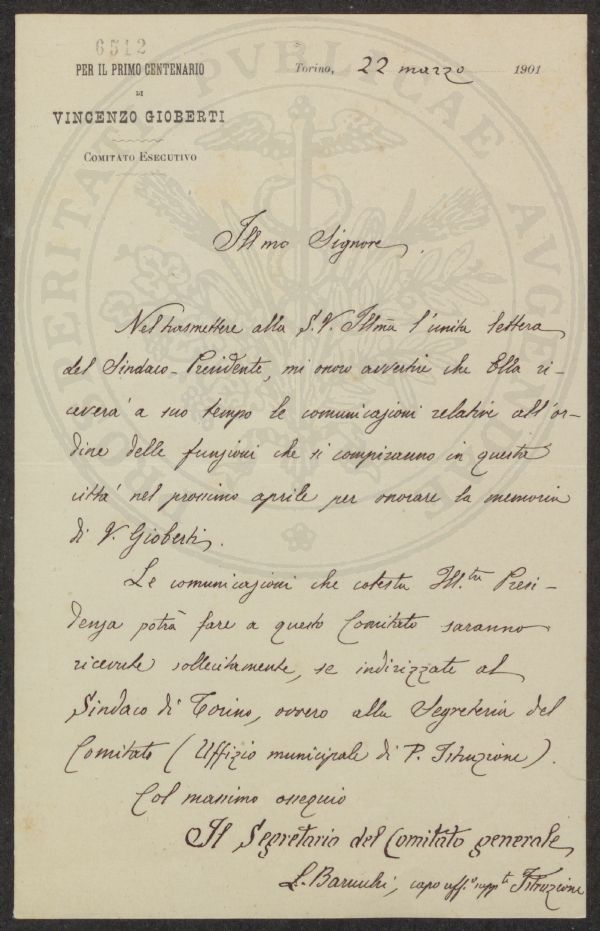 6512
PER IL PRIMO CENTENARIO
DI
VINCENZO GIOBERTI
COMITATO ESECUTIVO
Torino, 22 marzo 1901
Ill mo Signore,
Nel trasmettere alla S. V. Illma l'unita lettera
del Sindaco-Presidente, mi onoro avvertire che Ella ri-
ceverà a suo tempo le comunicazioni relative all'or-
dine delle funzioni che si compiranno in questa
città nel prossimo aprile per onorare la memoria
di V. Gioberti.
Le comunicazioni che cotesta Ill.tre Presi-
denza potrà fare a questo Comitato saranno
ricevute sollecitamente, se indirizzate al
Sindaco di Torino, ovvero alla Segreteria del
Comitato (Uffizio municipale di P. Istruzione).
Col massimo ossequio
Il Segretario del Comitato generale
L. Baruchi, capo uff.o Istruzione